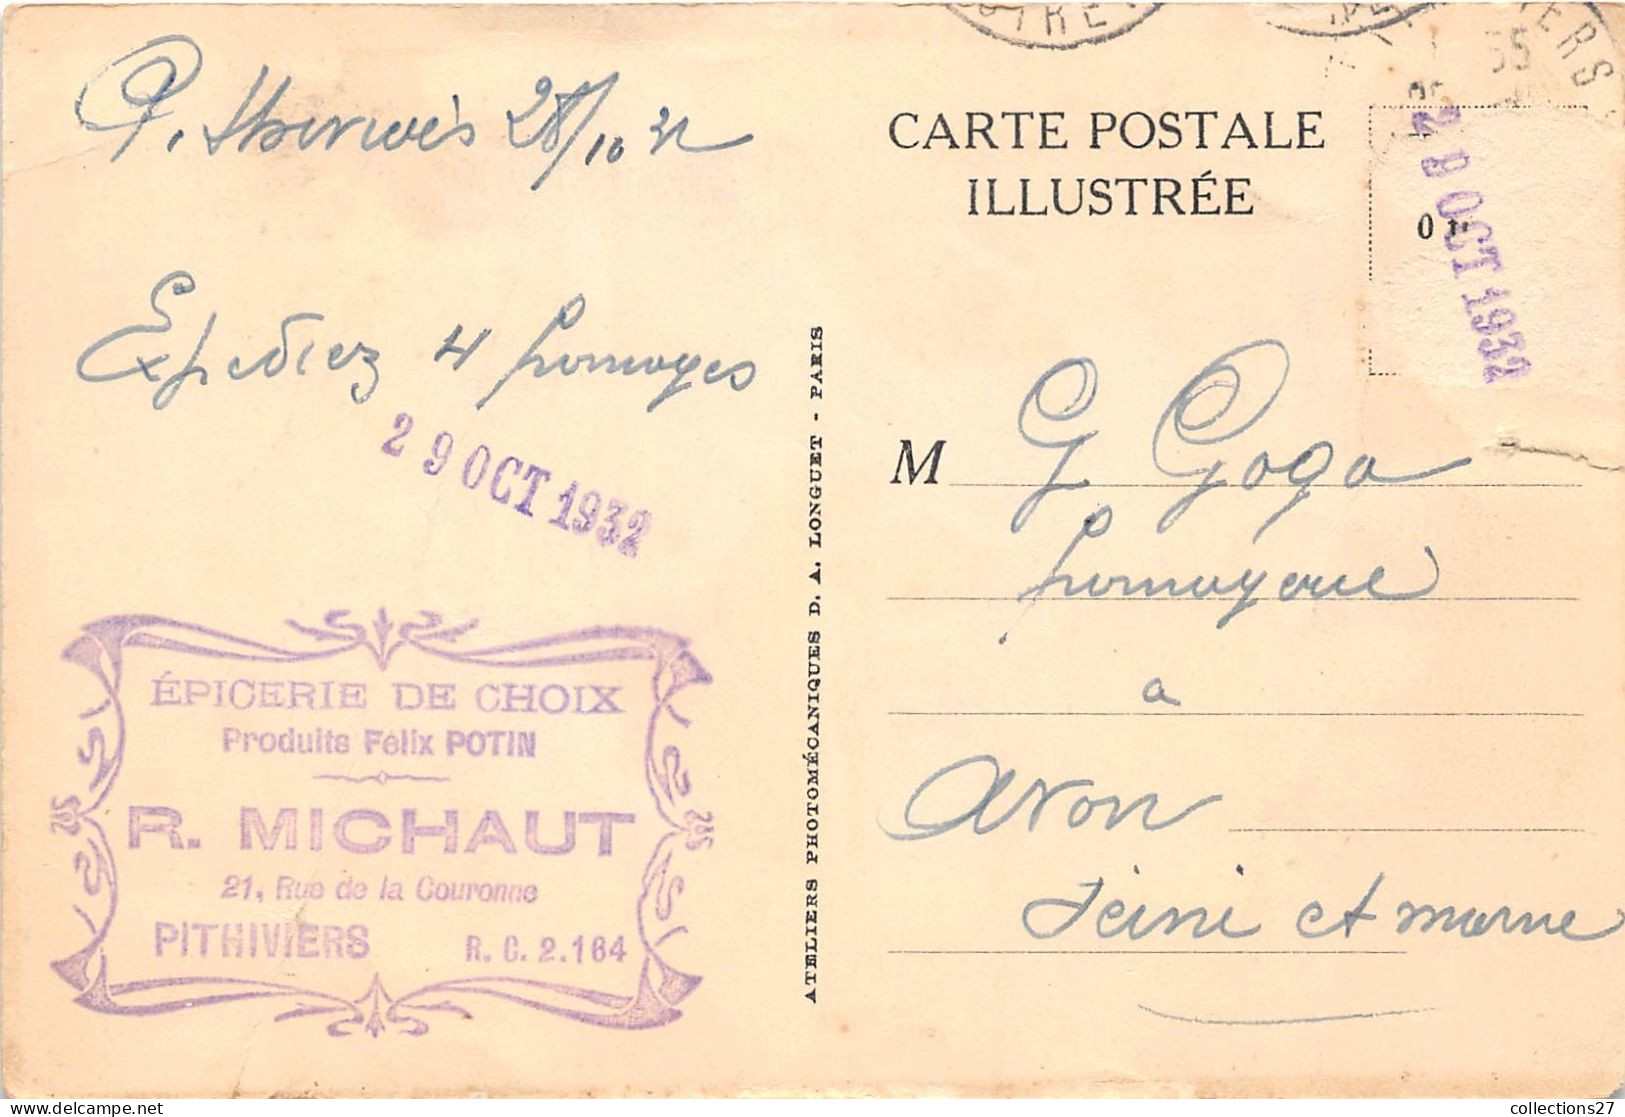 Pithiviers 28/10 32
Expediez 4 fromages
29 OCT 1932
ÉPICERIE DE CHOIX
Produits Félix POTIN
R. MICHAUT
21, Rue de la Couronne
PITHIVIERS R. C. 2.164
ATELIERS PHOTOMÉCANIQUES D. A. LONGUET - PARIS
CARTE POSTALE
ILLUSTRÉE
28 OCT 1932
M G Goga
fromagerie
a
Avon
Seine et marne
collections27